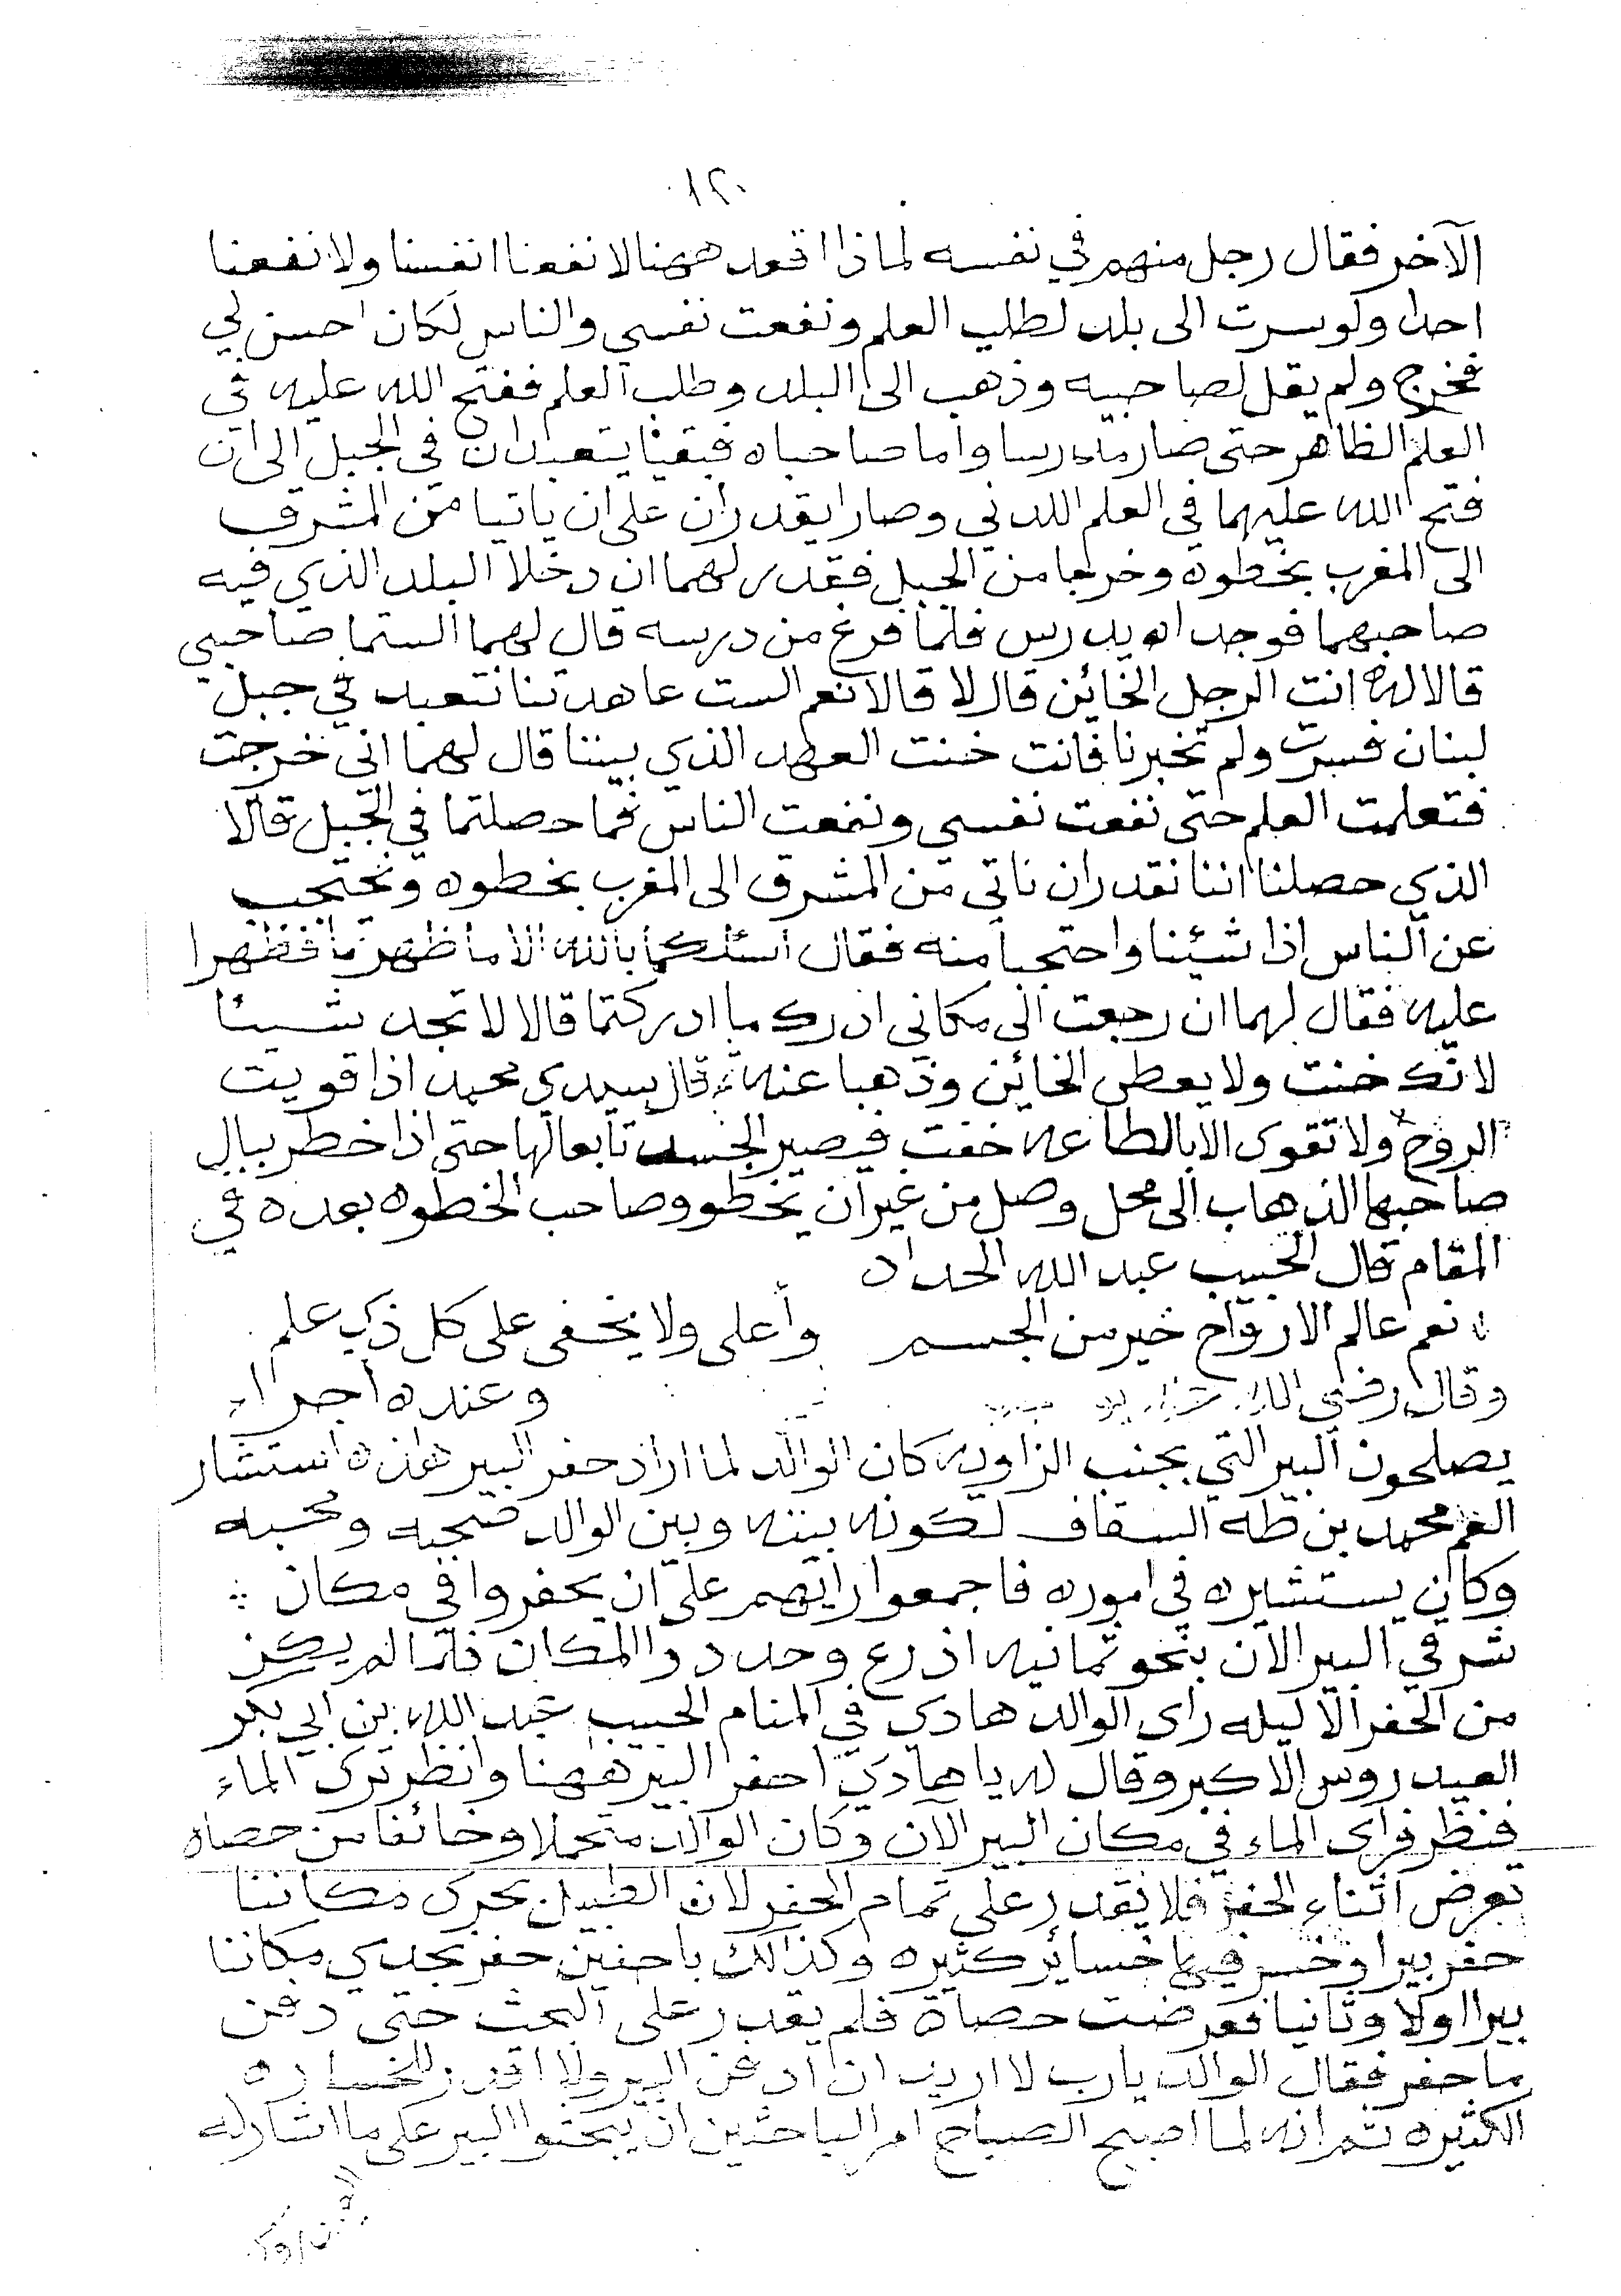 ١٢٠
الآخر فقال رجل منهم في نفسه لماذا اقعد ههنا لا نفعنا انفسنا ولا نفعنا
احدا ولو سرت الى بلد لطلب العلم ونفعت نفسي والناس لكان احسن لي
فخرج ولم يقل لصاحبيه وذهب الى البلد وطلب العلم ففتح الله عليه في
العلم الظاهر حتى صار مدرسا واما صاحباه فبقيا يتعبدان في الجبل الى ان
فتح الله عليهما في العلم اللدني وصارا يقدران على ان ياتيا من المشرق
الى المغرب بخطوه وخرجا من الجبل فقدر لهما ان دخلا البلد الذي فيه
صاحبهما فوجداه يدرس فلما فرغ من درسه قال لهما الستما صاحبي
قالا له انت الرجل الخائن قال لا قالا نعم الست عاهدتنا نتعبد في جبل
لبنان فسرت ولم تخبرنا فانت خنت العهد الذي بيننا قال لهما اني خرجت
فتعلمت العلم حتى نفعت نفسي ونفعت الناس فما حصلتما في الجبل قالا
الذي حصلنا اننا نقدر ان ناتي من المشرق الى المغرب بخطوه ونحتجب
عن الناس اذا شئنا واحتجبا منه فقال اسئلكما بالله الا ما ظهرتما فظهرا
عليه فقال لهما ان رجعت الى مكاني ادرك ما ادركتما قالا لا تجد شيئا
لانك خنت ولا يعطى الخائن وذهبا عنه قال سيدي محمد اذا قويت
الروح ولا تقوى الا بالطاعه خفت فيصير الجسد تابعا لها حتى اذا خطر ببال
صاحبها الذهاب الى محل وصل من غير ان يخطو وصاحب الخطوه بعده في
المقام قال الحبيب عبد الله الحداد
نعم عالم الارواح خير من الجسم وأعلى ولا يخفى على كل ذي علم
وقال رضي الله وعنده أجراء
يصلحون البير التي بجنب الزاويه كان الوالد لما اراد حفر البير هذه استشار
العم محمد بن طه السقاف لكونه بينه وبين الوالد صحبه ومحبه
وكان يستشيره في اموره فاجمعوا رايهم على ان يحفروا في مكان
شرقي البير الآن بنحو ثمانيه اذرع وحددوا المكان فلما لم يكن
من الحفر الا ليله راى الوالد هادي في المنام الحبيب عبد الله بن ابي بكر
العيدروس الاكبر وقال له يا هادي احفر البير ههنا وانظر ترى الماء
فنظر فراى الماء في مكان البير الآن وكان الوالد متحملا وخائفا من حصاه
تعرض اثناء الحفر فلا يقدر على تمام الحفر لان الطبيل بحرى مكاننا
حفر بيرا وخسر فيها خساير كثيره وكذالك باحفين حفر بجدي مكاننا
بيرا اولا وثانيا فعرضت حصاة فلم يقدر على البحث حتى دفن
ما حفر فقال الوالد يارب لا اريد ان ادفن البير ولا اقدر للخساره
الكثيره ثم انه لما اصبح الصباح امر الباحثين ان يبحثوا البير على ما اشار له